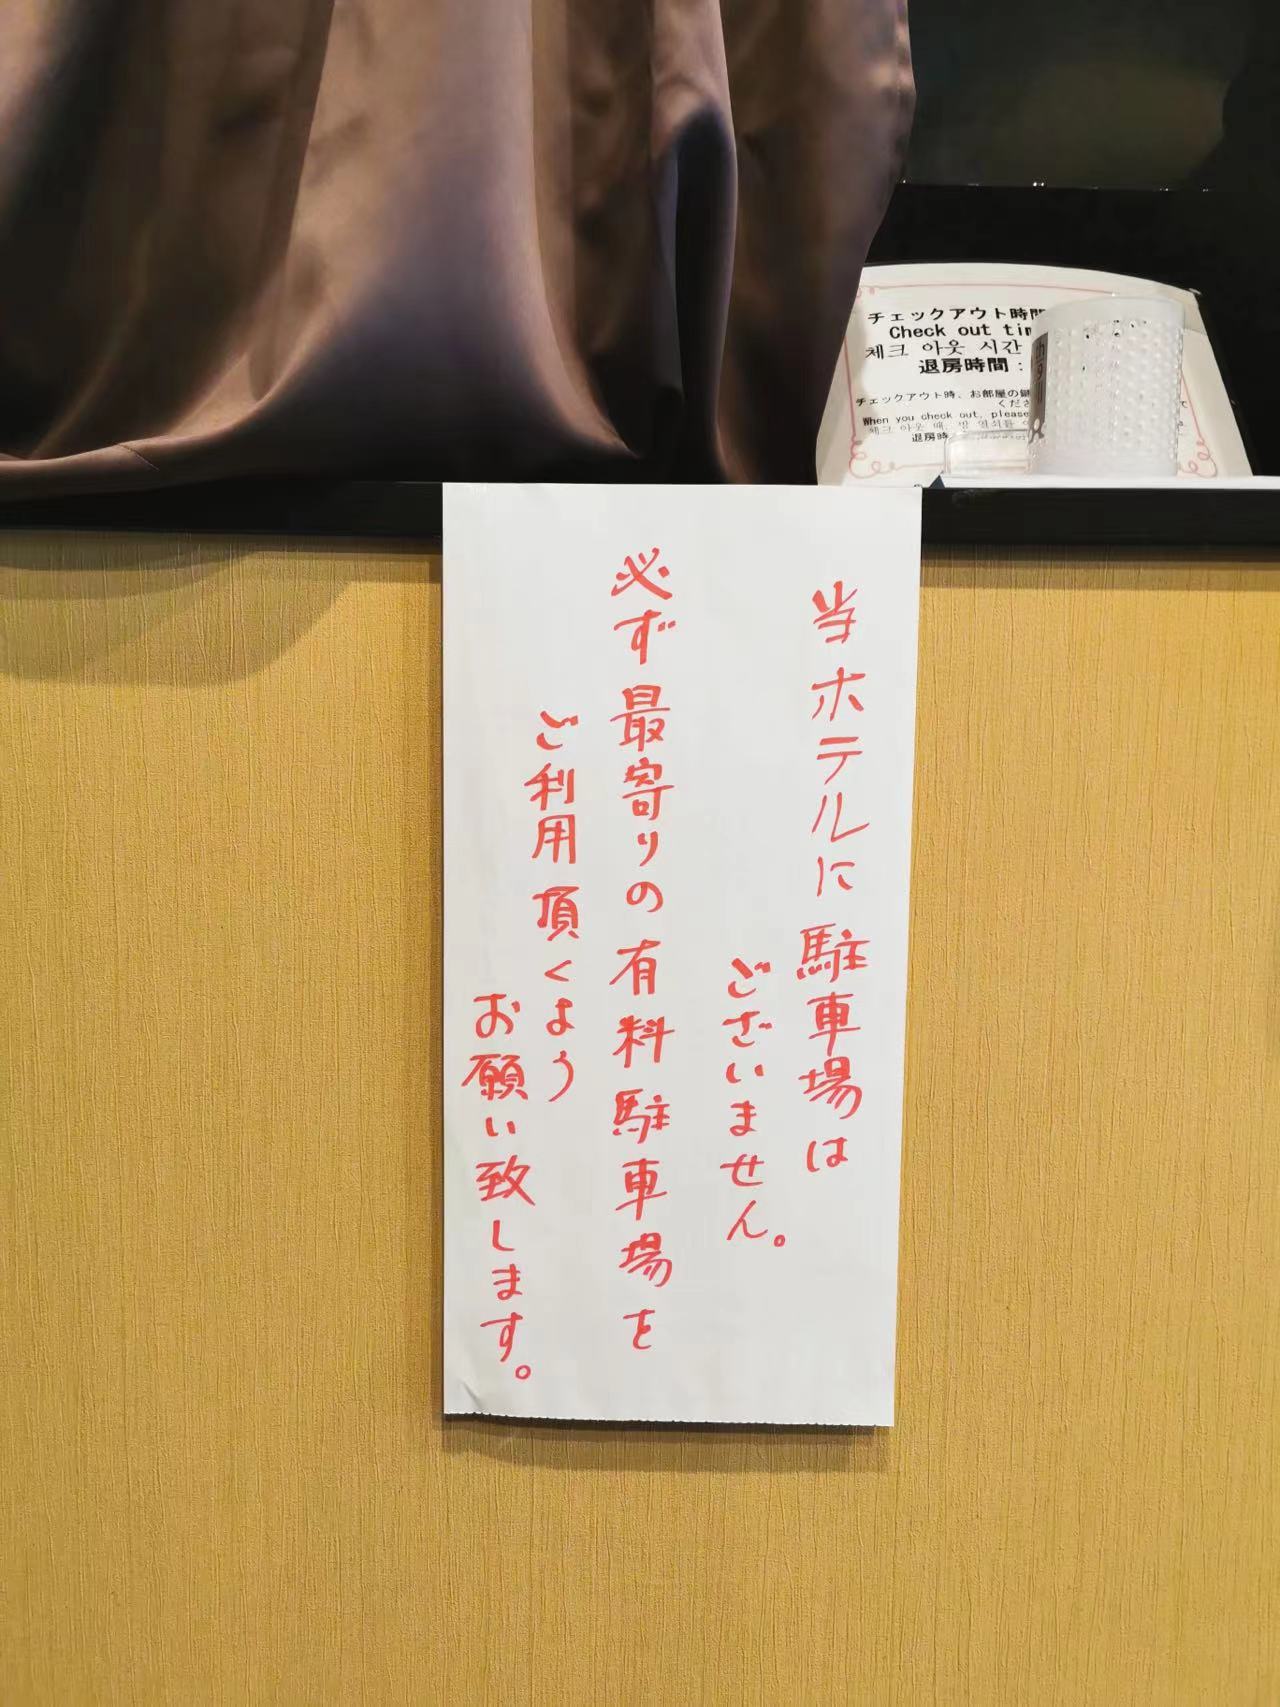 当ホテルに駐車場は
ございません。
必ず最寄りの有料駐車場を
ご利用頂くよう
お願い致します。
チェックアウト時間
Check out tim
체크 아웃 시간
退房時間:
チェックアウト時、お部屋の鍵
くださ
When you check out, please
체크 아웃 때, 방 열쇠를
退房時